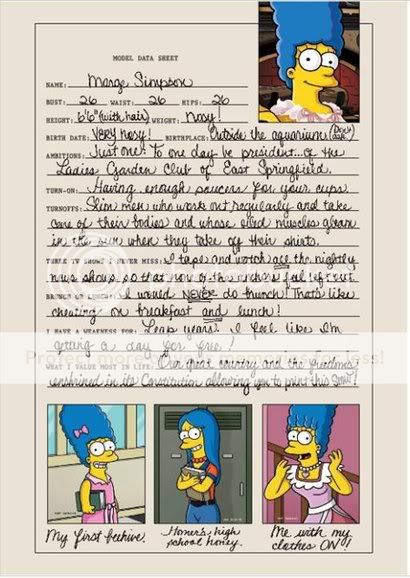 MODEL DATA SHEET
NAME: Marge Simpson
BUST: 26 WAIST: 26 HIPS: 26
HEIGHT: 6'6" (with hair) WEIGHT: nosy!
BIRTH DATE: VERY nosy! BIRTHPLACE: Outside the aquarium. (Don't ask.)
AMBITIONS: Just one: To one day be president...of the
Ladies Garden Club of East Springfield.
TURN-ON: Having enough saucers for your cups.
TURNOFFS: Slim men who work out regularly and take
care of their bodies and whose oiled muscles gleam
in the sun when they take off their shirts.
THREE TV SHOWS I NEVER MISS: I tape and watch all the nightly
news shows, so that none of the anchors feel left out.
BRUNCH OR LUNCH? I would NEVER do brunch! That's like
cheating on breakfast and lunch!
I HAVE A WEAKNESS FOR: Leap years. I feel like I'm
getting a day for free!
WHAT I VALUE MOST IN LIFE: Our great country and the freedoms
enshrined in its Constitution allowing you to print this smut!
My first beehive.
Homer's high
school honey.
Me with my
clothes ON!